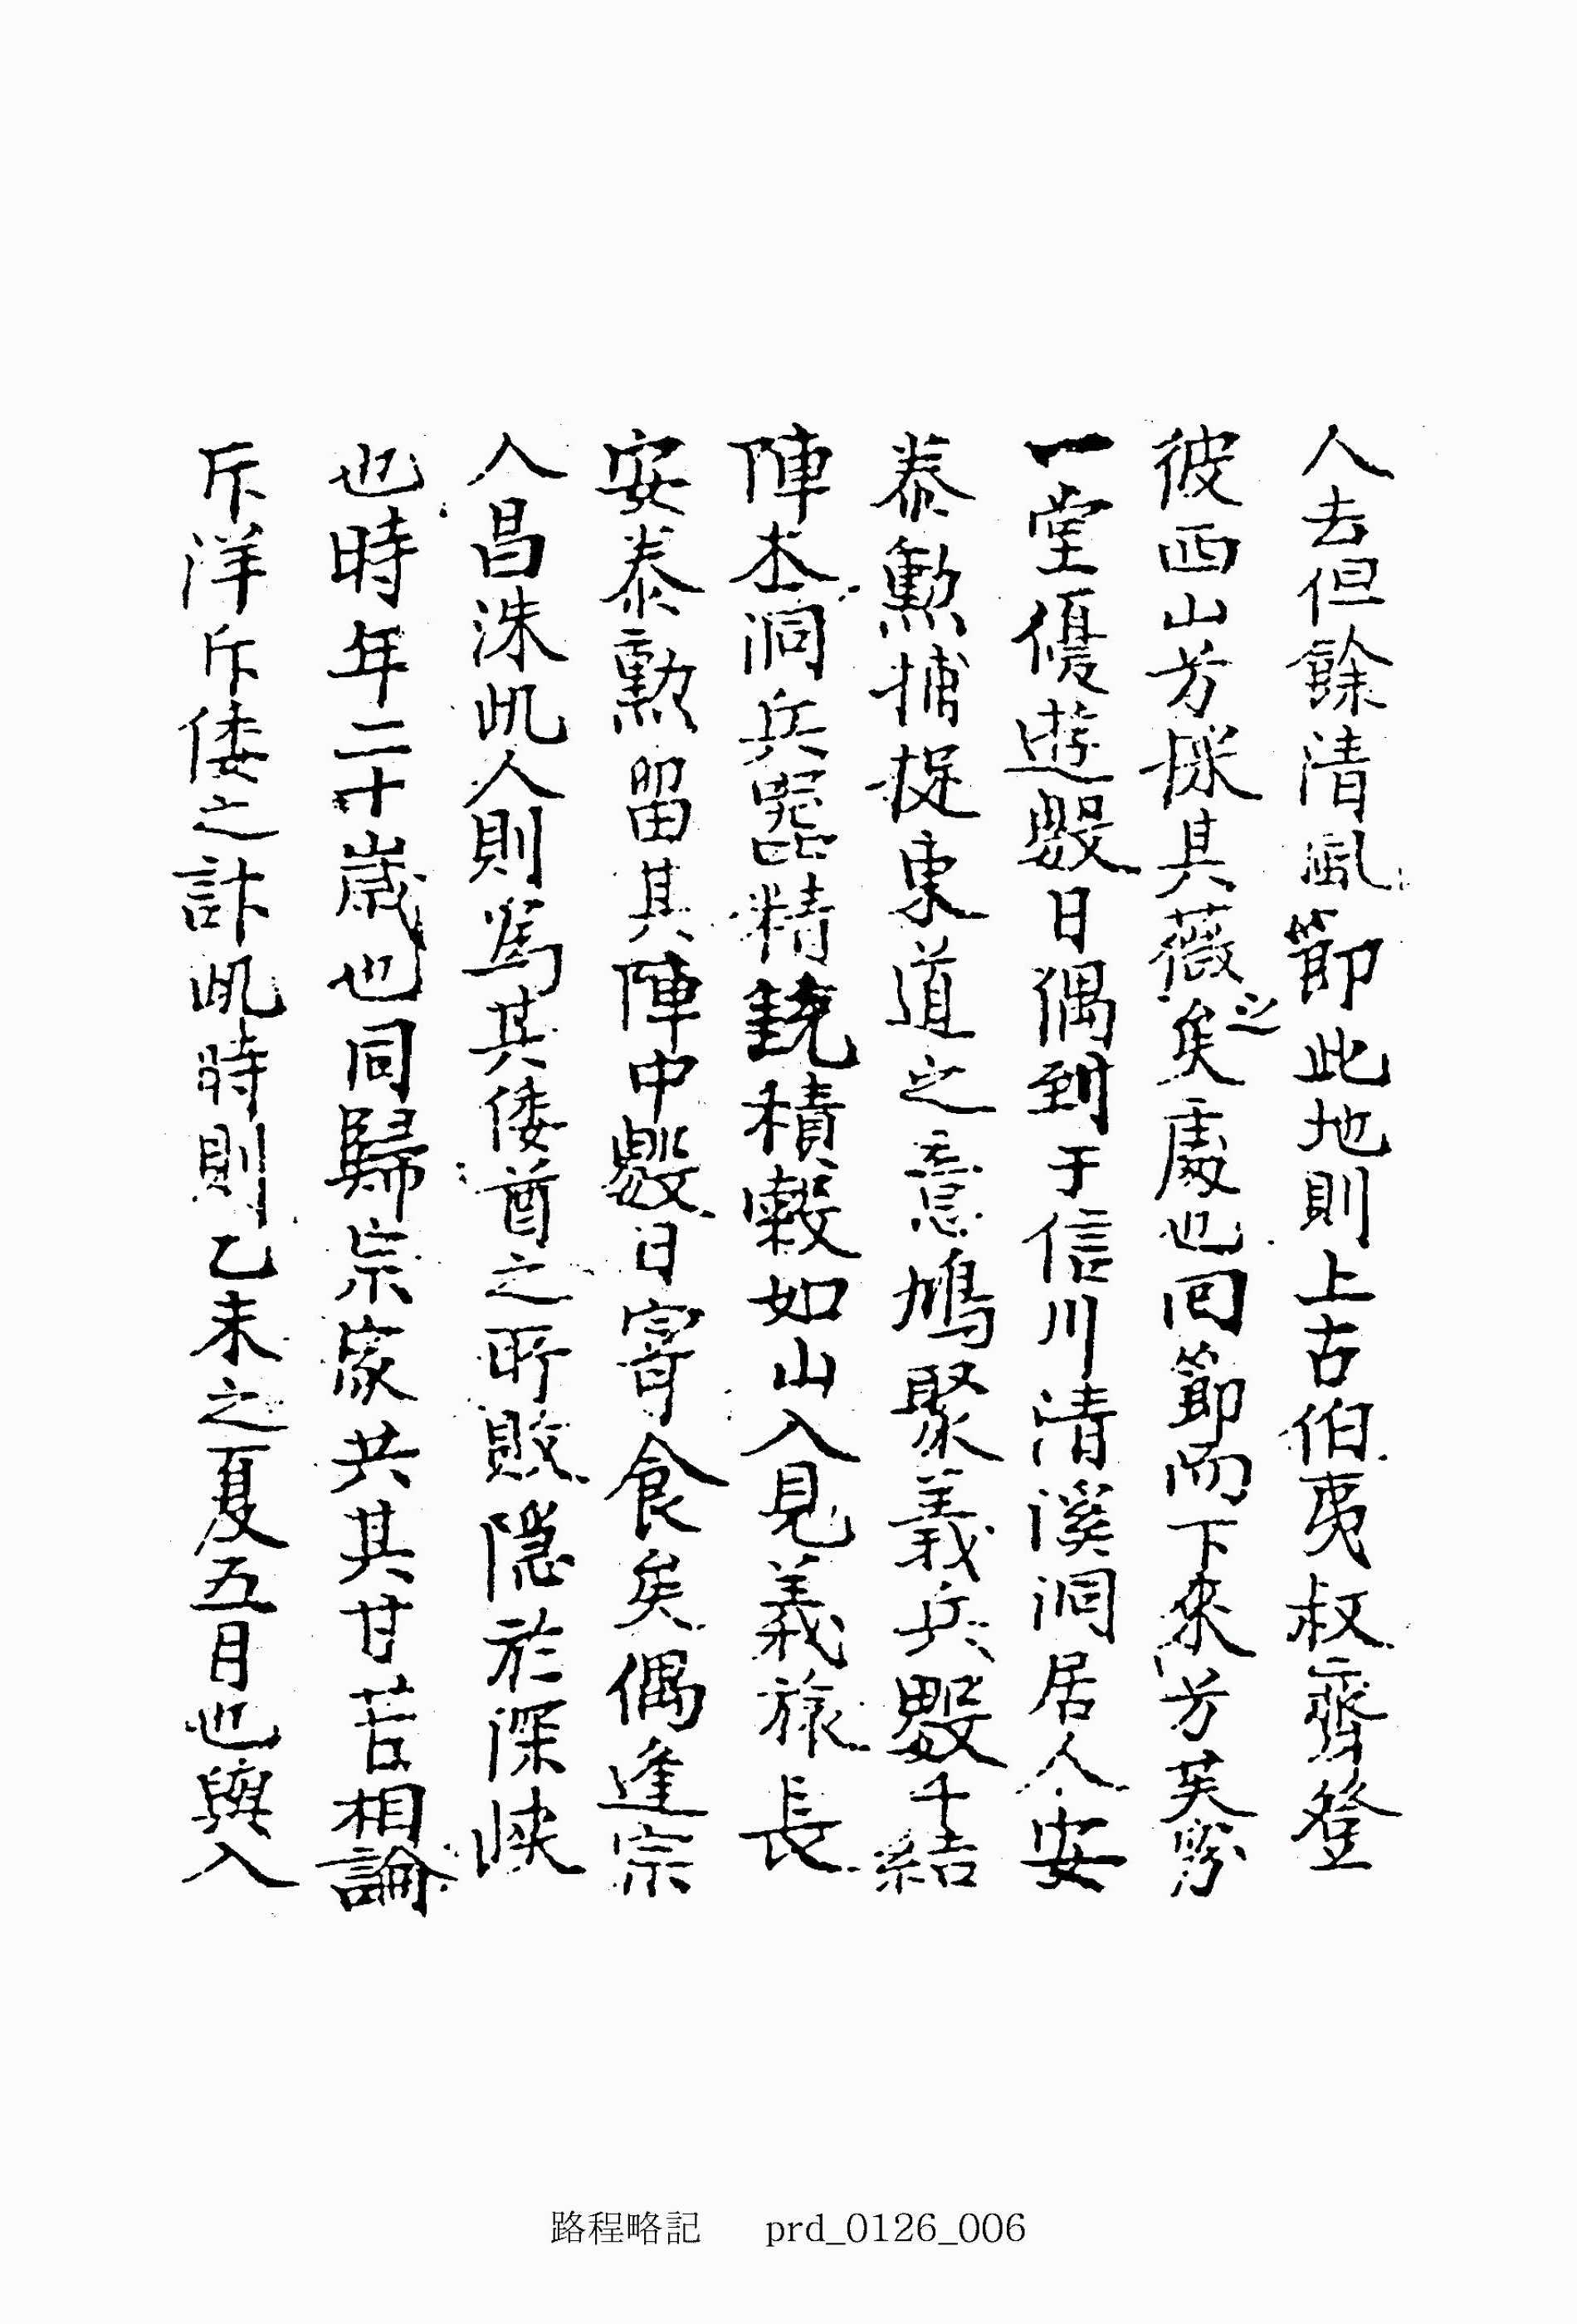 人去但餘淸風節此地則上古伯夷叔齊登
彼西山芳採其薇之矣處也回節而下來芳芙蓉
一堂優遊數日偶到于信川淸溪洞居人安
泰勳捕捉東道之意鳩聚義兵數千結
陣本洞兵器精銳積穀如山入見義旅長
安泰勳留其陣中數日寄食矣偶逢宗
人昌洙此人則爲其倭酋之所敗隱於深峽
也時年二十歲也同歸宗家共其甘苦相論
斥洋斥倭之計此時則乙未之夏五月也與入
路程略記 prd_0126_006